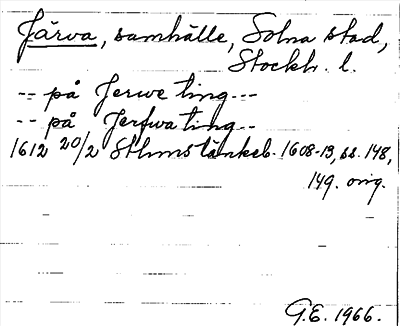 Järva, samhälle, Solna stad,
Stockh. l.
-- på Jerwe ting --
-- på Jerfwa ting --
1612 20/2 Sthms tänkeb. 1608-13, ss. 148,
149. orig.
G.E. 1966.